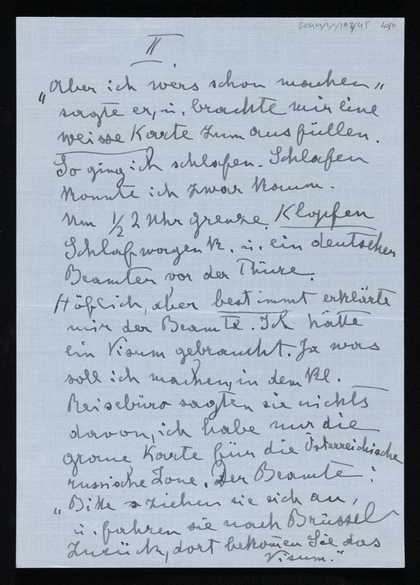 II
„Aber ich wers schon machen„
sagte er, u. brachte mir eine
weisse Karte zum ausfüllen.
So ging ich schlafen. Schlafen
konnte ich zwar kaum.
Um ½ 2 Uhr Grenze. Klopfen
Schlafwagen K. u. ein deutscher
Beamter vor der Thüre.
Höflich, aber bestimmt erklärte
mir der Beamte. Ich hätte
ein Visum gebraucht. Ja was
soll ich machen, in dem
Reisebüro sagten sie nichts
davon, ich habe nur die
graue Karte für die Österreichische
russische Zone. Der Beamte:
„Bitte ziehen sie sich an,
u. fahren sie nach Brüssel
zurück, dort bekom̄en Sie das
Visum."